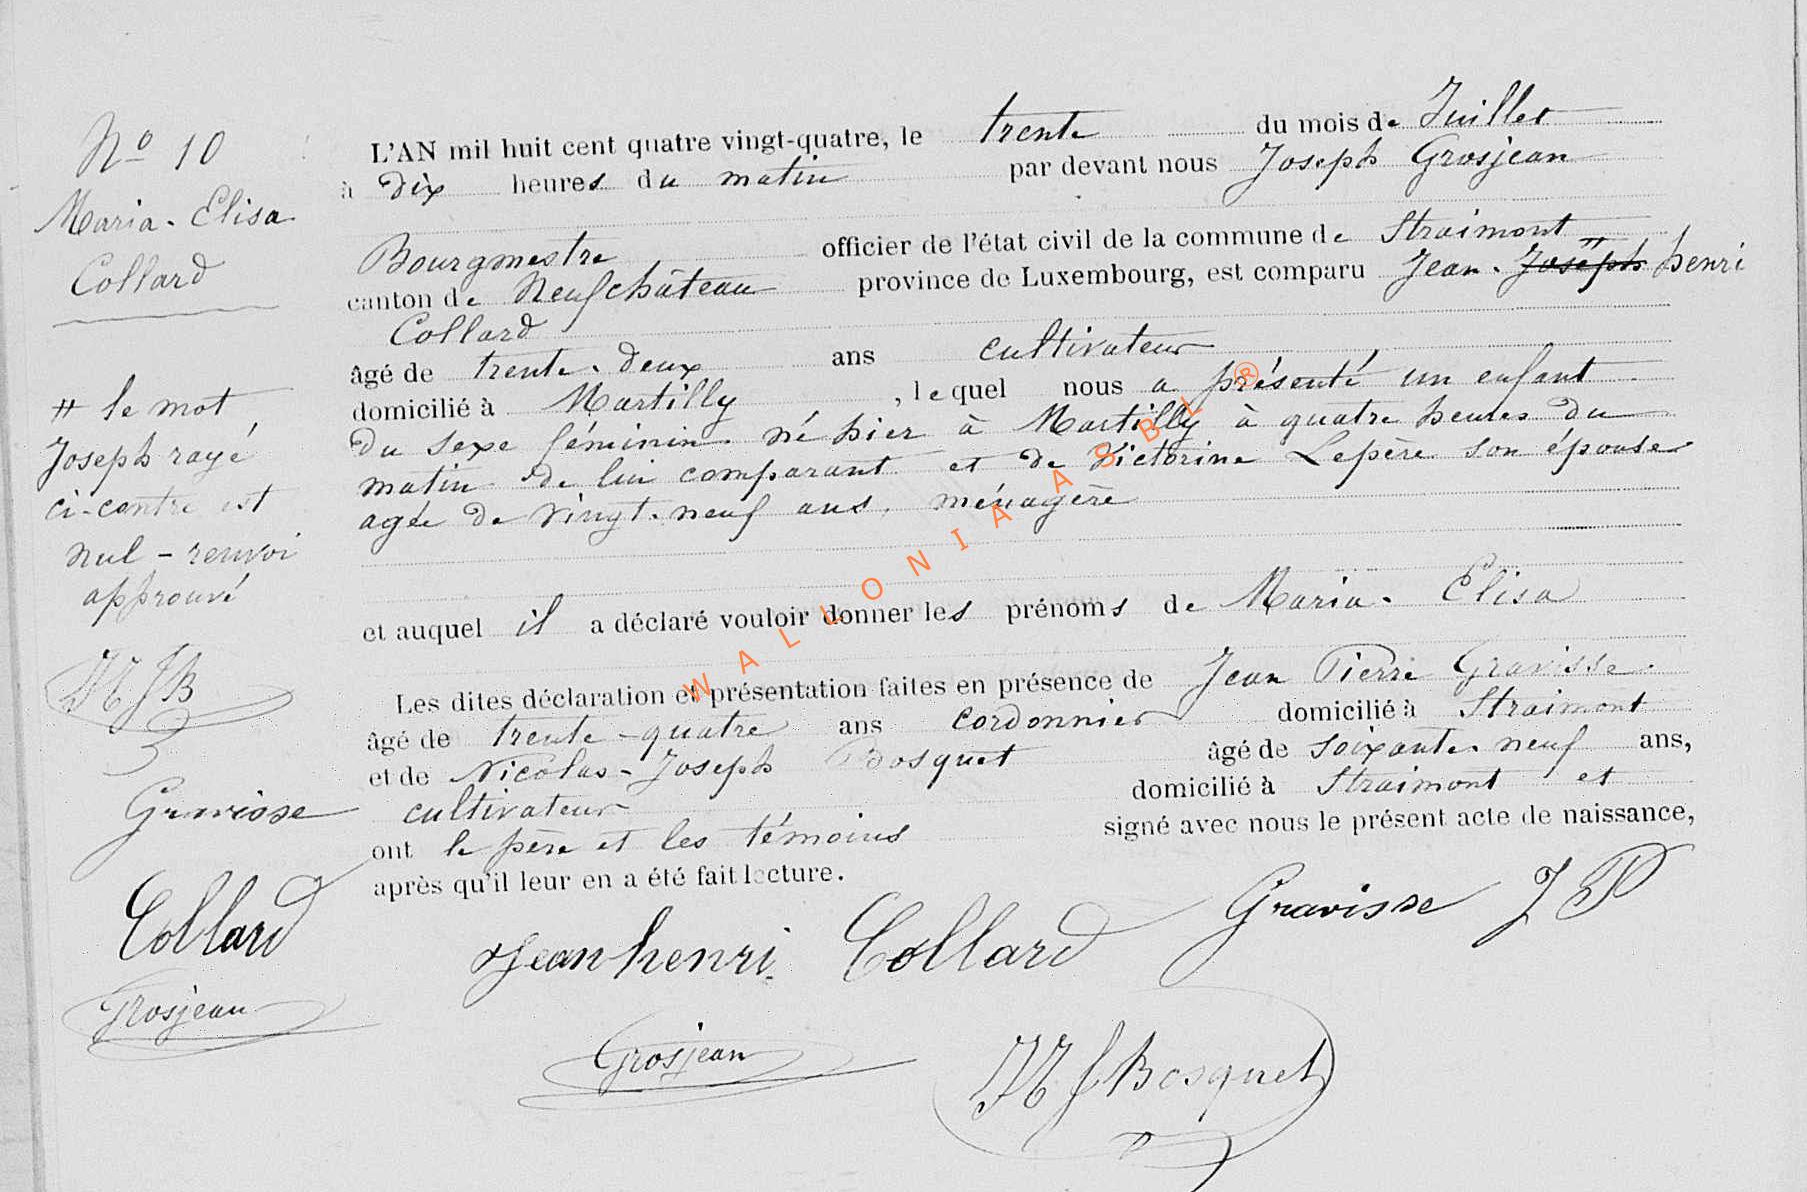 No 10
Maria-Elisa
Collard
# le mot
Joseph rayé
ci-contre est
nul - renvoi
approuvé
NJB
Gravisse
Collard
Grosjean
L'AN mil huit cent quatre vingt-quatre, le trente du mois de Juillet
à dix heures du matin par devant nous Joseph Grosjean
Bourgmestre officier de l'état civil de la commune de Straimont
canton de Neufchâteau province de Luxembourg, est comparu Jean-Joseph # henri
Collard
âgé de trente-deux ans cultivateur
domicilié à Martilly, lequel nous a présenté un enfant
du sexe féminin né hier à Martilly à quatre heures du
matin de lui comparant et de Victorine Lepère son épouse
agée de vingt-neuf ans, ménagère
et auquel il a déclaré vouloir donner les prénoms de Maria-Elisa
Les dites déclaration et présentation faites en présence de Jean Pierre Gravisse
âgé de trente-quatre ans cordonnier domicilié à Straimont
et de Nicolas-Joseph Bosquet âgé de soixante-neuf ans,
cultivateur domicilié à Straimont et
ont le père et les témoins signé avec nous le présent acte de naissance,
après qu'il leur en a été fait lecture.
Jean henri Collard Gravisse J P
Grosjean
NJBosquet
WALLONIA ASBL ®